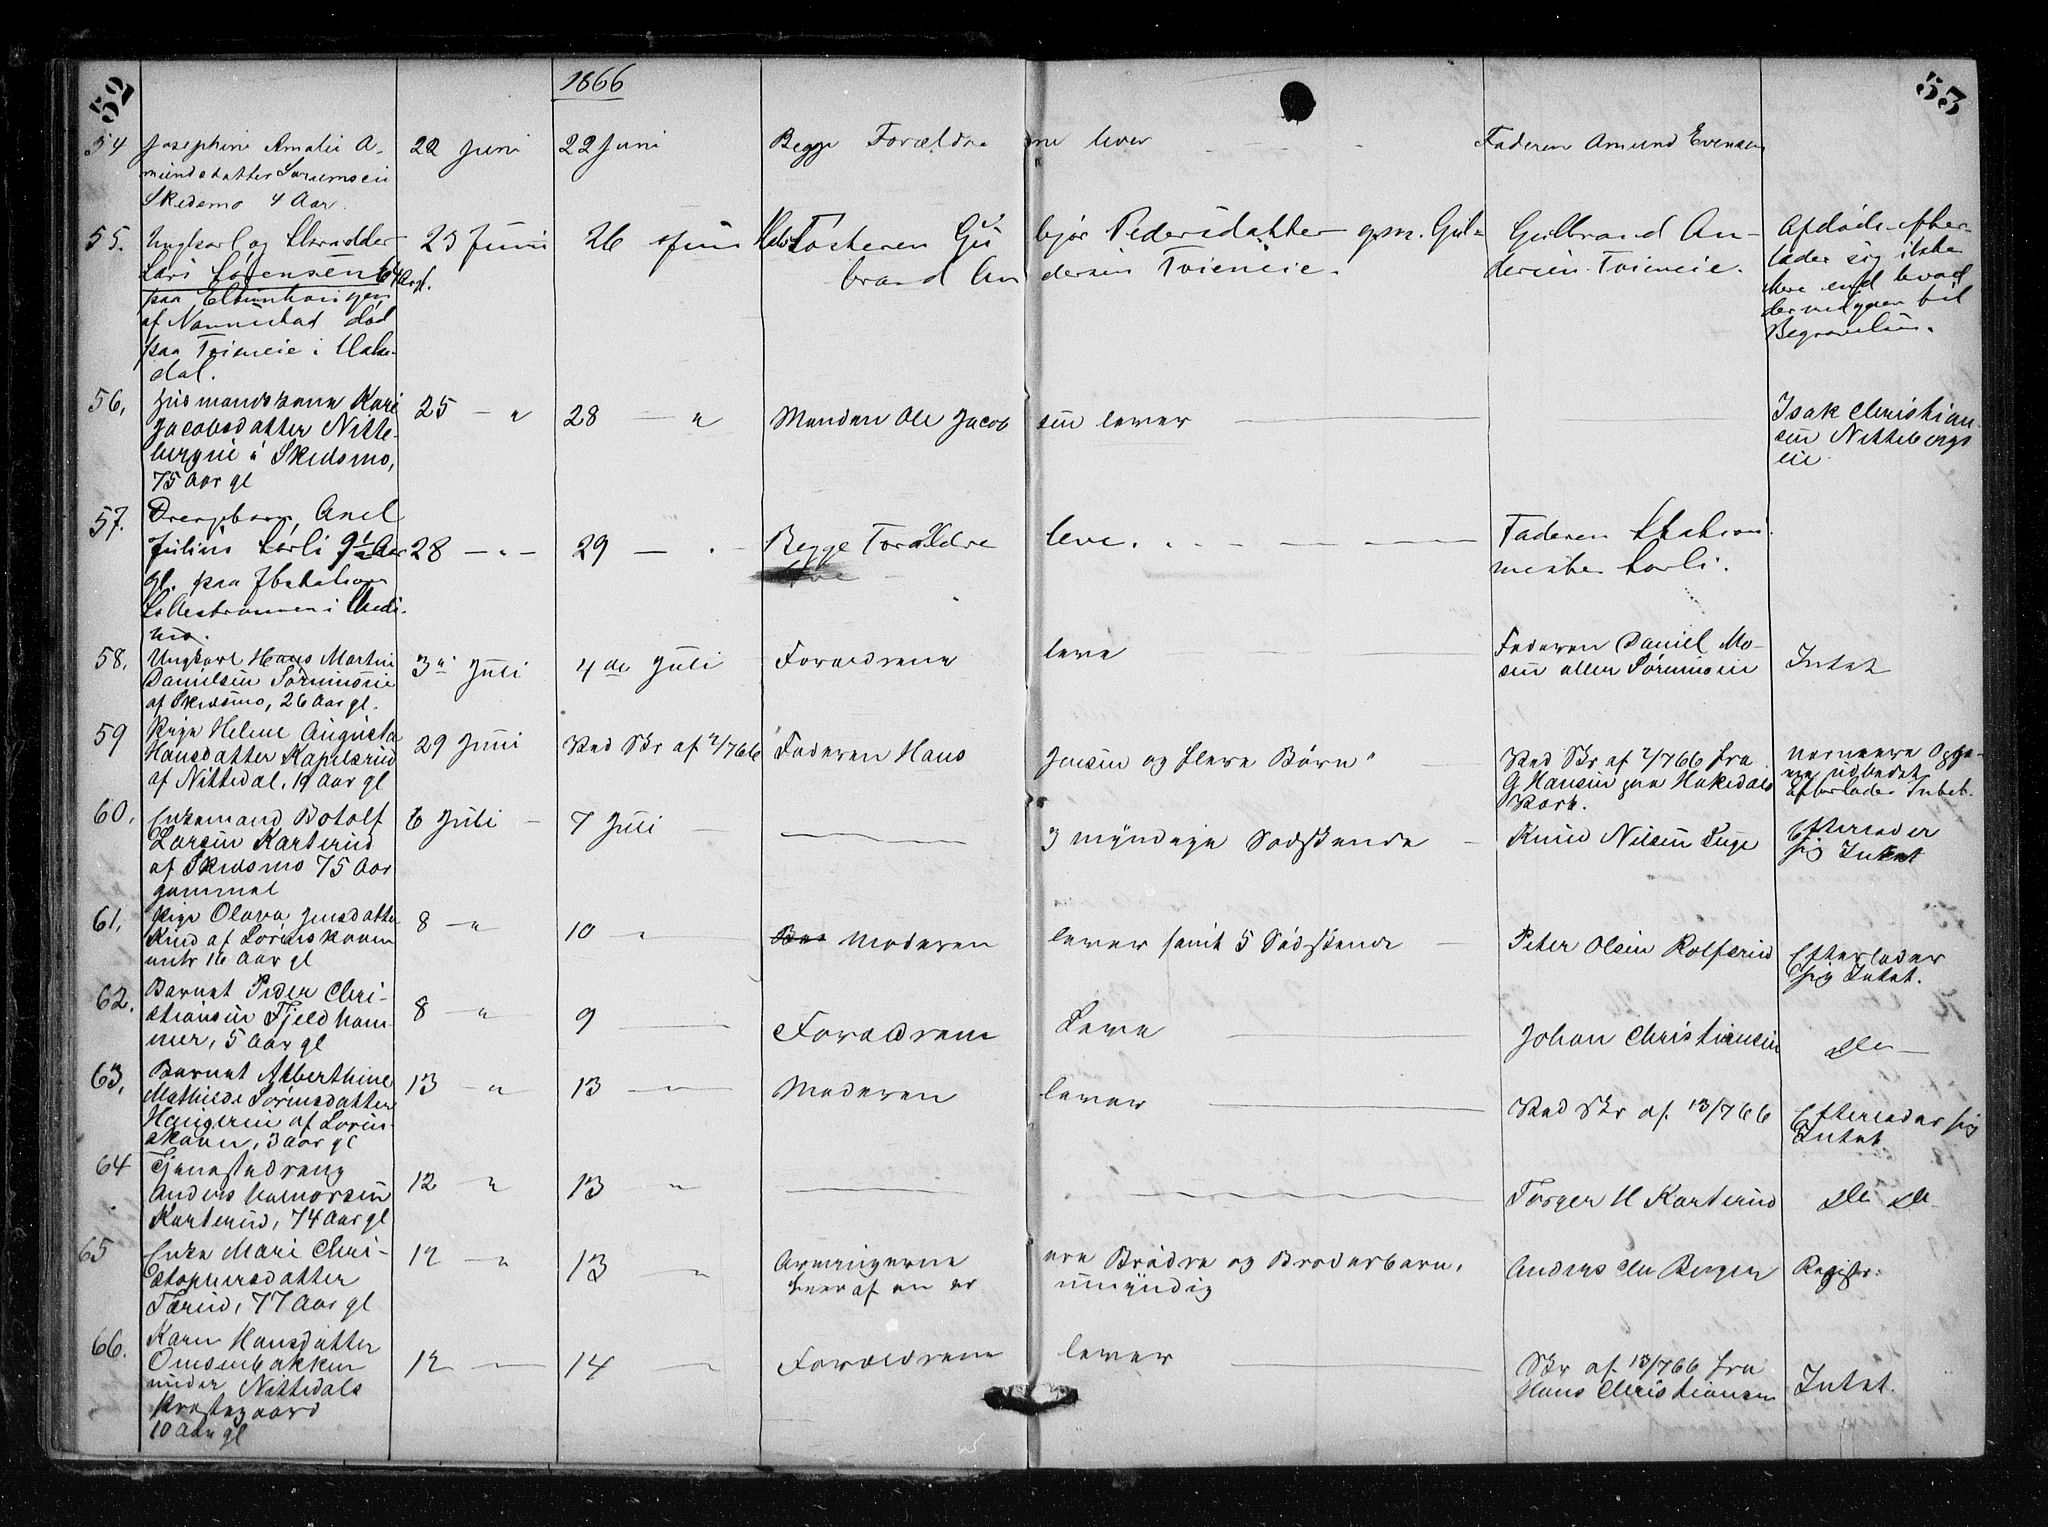 52
1866
53
54 Josephine Amalie A-
mundsdatter Sørumseie
Skedsmo 4 Aar.
22 Juni
22 Juni
Begge Forældre
ne lever
Faderen Amund Evensen
55. Ungkarl og Skrædder
Lars Sørensen 64 Aar gl.
paa
af Nannestad død
paa Tøieneie i Hake-
dal.
23 Juni
26 Juni
Søsteren Gu
brand An
bjør Pedersdatter gm. Gul-
dersen Tøieneie.
Gulbrand An-
dersen Tøieneie.
Afdøde efter-
lader sig ikke
Mere end hvad
der medgaaer til
Begravelsen.
56. Huusmandskone Kari
Jacobsdatter Nitte-
bergeie i Skedsmo,
75 Aar gl
25 — "
28 — "
Manden Ole Jacob
sen lever
Isak Christian-
sen Nittebergs
eie
57. Drengebarn, Axel
Julius Sørli 9½ Aar
gl. paa Jbstation
Lillestrømmen i Skeds-
mo.
28 — " —
29 — " —
Begge Forældre
leve.
Faderen Station
mester Sørli.
58. Ungkarl Hans Martin
Danielsen Sørumseie
af Skedsmo, 26 Aar gl.
3de Juli
4de Juli
Forældrene
leve
Faderen Daniel Mo-
sen eller Sørumseie
Intet
59 Pige Helene Augusta
Hansdatter Kapelsrud
af Nittedal, 19 Aar gl
29 Juni
Ved Skr af 2/7 66
"Faderen Hans
Jensen og flere Børn"
Ved Skr af 2/7 66 fra
G Hansen paa Hakedals
Værk.
nærmere Opga-
ve udbedet
Efterlader Intet.
60. Enkemand Botolf
Larsen Karterud
af Skedsmo 75 Aar
gammel
6 Juli —
7 Juli
3 myndige Sødskende
Knud Nilsen Luge
Efterlader
sig Intet
61. Pige Olava Jensdatter
Rud af Lørenskoven
16 Aar gl
8 — "
10 "
Moderen
lever samt 5 Sødskende
Peter Olsen Rolfsrud
Efterlader
sig Intet.
62. Barnet Peder Chri-
stiansen Fjeldham-
mer, 5 Aar gl
8 — "
9 —
Forældrene
Leve
Johan Christiansen
Do —
63. Barnet Alberthine
Mathilde Sørensdatter
Haugerin af Løren-
skoven, 3 Aar gl
13 — "
13 — "
Moderen
lever
Ved Skr af 13/7 66
Efterlader sig
Intet
64 Tjenestedreng
Anders Halvorsen
Karterud, 74 Aar gl
12 "
13 "
Torger H Karterud
Do Do
65 Enke Mari Chri-
stophersdatter
Tærud, 77 Aar gl
12 — "
13 — "
Arvingerne
hvoraf en er
ere Brødre og Broderbørn,
umyndig
Anders Berger
Register.
66. Karen Hansdatter
Onsenbakken
under Nittedals
Præstegaard
10 Aar gl
12 —
14 —
Forældrene
lever
Skr af 13/7 66 fra
Hans Christiansen
Intet.